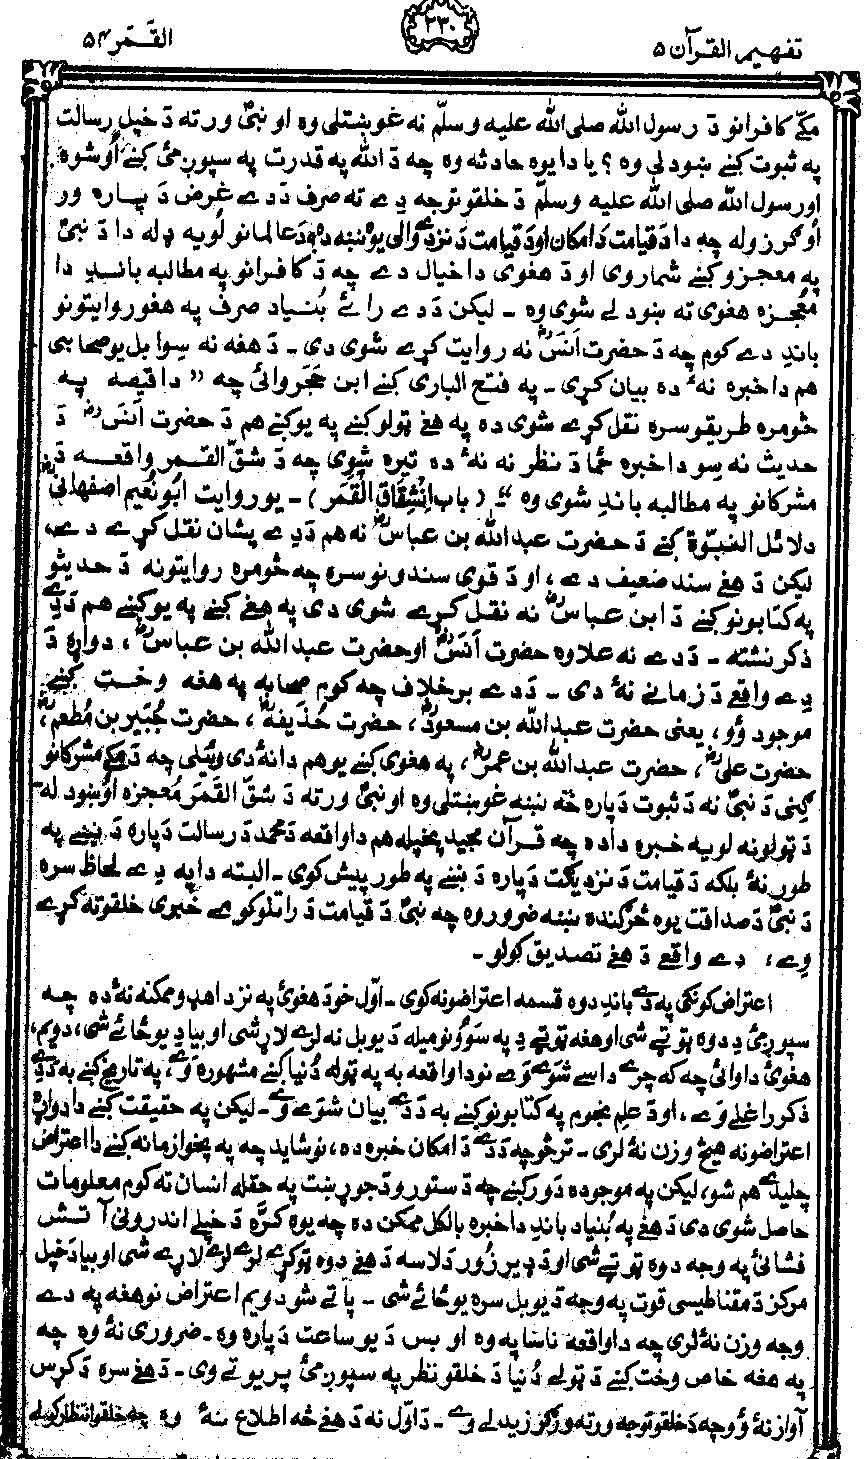 تفهیم القرآن ۵
۲۳۰
القَمَر ۵۴
مکّے کافرانو دَ رسول الله صلی الله علیه وسلّم نه غوښتلی وه او نبیؐ ورته دَ خپل رسالت
په ثبوت کښے ښودلی وه؟ یا دا یوه حادثه وه چه دَ الله په قدرت په سپوږمئ کښے اُوشوه
اورسول الله صلی الله علیه وسلّم دَ خلقو توجه دِے ته صرف دَدے غرض دَ پاره ور
اُوګرزوله چه دا دَ قیامت دَ امکان او دَ قیامت دَ نزدے والی یو ښنه ده. دَ عالمانو لویه ډله دا دَ نبیؐ
په معجزو کښے شماروی او دَ هغوی دا خیال دے چه دَ کافرانو په مطالبه باندِ دا
مُعجزه هغوی ته ښودلے شوی وه ـ لیکن دَدے رائے بُنیاد صرف په هغو روایتونو
باندِ دے کوم چه دَ حضرت اَنسؓ نه روایت کړے شوی دی ـ دَ هغه نه سِوا بل یو صحابی
هم دا خبره نهٔ ده بیان کړی ـ په فتح الباری کښے ابن حَجَر وائی چه "دا قیصه په
څومره طریقو سره نقل کړے شوی ده په هغے ټولو کښے په یو کښے هم دَ حضرت اَنسؓ دَ
حدیث نه سِو دا خبره څما دَ نظر نه نهٔ ده تیره شوی چه دَ شقّ القمر واقعه دَ
مشرکانو په مطالبه باندِ شوی وه" ـ (باب اِنشِقاق القَمَر) ـ یو روایت ابُونُعیم اصفهانیؒ
دلائل النبوّة کښے دَ حضرت عبدالله بن عباسؓ نه هم دَدے پشان نقل کړے دے،
لیکن دَ هغے سند ضعیف دے، او دَ قوی سندونو سره چه څومره روایتونه دَ حدیثو
په کتابونو کښے دَ ابن عباسؓ نه نقل کړے شوی دی په هغے کښے په یو کښے هم دَدے
ذکر نشته ـ دَدے نه علاوه حضرت اَنسؓ اوحضرت عبدالله بن عباسؓ، دواړه دَ
دِے واقعے دَ زمانے نهٔ دی ـ دَدے برخلاف چه کوم صحابه په هغه وخت کښے
موجود وُو، یعنی حضرت عبدالله بن مسعودؓ، حضرت حُذَیفهؓ، حضرت جُبَیر بن مُطعمؓ،
حضرت علیؓ، حضرت عبدالله بن عمرؓ، په هغوی کښے یو هم دا نهٔ دی وئیلی چه دَ مکّے مشرکانو
دَ نبیؐ نه دَ ثبوت دَ پاره څه ښنه غوښتلی وه او نبیؐ ورته دَ شقّ القَمَر مُعجزه اُوښودله ـ
دَ ټولو نه لویه خبره داده چه قرآن مجید پخپله هم دا واقعه دَ محمد دَ رسالت دَ پاره دَ ښنے په
طور نهٔ بلکه دَ قیامت دَ نزدیکت دَ پاره دَ ښنے په طور پیش کوی ـ البته دا په دِے لحاظ سره
دَ نبیؐ دَ صداقت یوه څرګنده ښنه ضرور وه چه نبیؐ دَ قیامت دَ راتلو کومے خبری خلقو ته کړے
وِے، دِے واقعے دَ هغے تصدیق کولو ـ
اعتراض کوُنکی په دے باندِ دوه قسمه اعتراضونه کوی ـ اوّل خو دَ هغوی په نزد اهډو ممکنه نهٔ ده چه
سپوږمئ دِ دوه ټوټے شی او هغه ټوټے دِ په سوُونو میله دَ یو بل نه لرے لاړشی او بیا دِ یو ځائے شی، دویم،
هغوی دا وائی چه که چرے داسے شوے وے نو دا واقعه به په ټوله دُنیا کښے مشهوره وَے، په تاریخ کښے به دَدے
ذکر راغلے وے، اودَ علمِ نجوم په کتابونو کښے به دَدے بیان شوے وے ـ لیکن په حقیقت کښے دا دواړه
اعتراضونه هیڅ وزن نهٔ لری ـ ترڅو چه دَدے دَ امکان خبره ده، نو شاید چه په پخوا زمانه کښے دا اعتراض
چلیدے هم شو، لیکن په موجوده دَور کښے چه دَ ستورو دَ جوړښت په حقله انسان ته کوم معلومات
حاصل شوی دی دَ هغے په بُنیاد باندِ دا خبره بالکل ممکن ده چه یوه کرّه دَ خپلے اندرونی آتش
فشانئ په وجه دوه ټوټے شی اودَ ډیر زور دَ لاسه دَ هغے دوه ټوکړے لرے لرے لاړے شی او بیا دَ خپل
مرکز دَ مقناطیسی قوت په وجه دَ یو بل سره یو ځائے شی ـ پاتے شو دویم اعتراض نو هغه په دے
وجه وزن نهٔ لری چه دا واقعه ناسا په وه او بس دَ یو ساعت دَ پاره وه ـ ضروری نهٔ وه چه
په هغه خاص وخت کښے دَ ټولے دُنیا دَ خلقو نظر په سپوږمئ پریوتے وی ـ دَ هغے سره دَ کړس
آواز نهٔ وو چه دَ خلقو توجه ورته ورګرزیدلے وے ـ دَ اوّل نه دَ هغے څه اطلاع نهٔ وه چه خلقو انتظار کولے